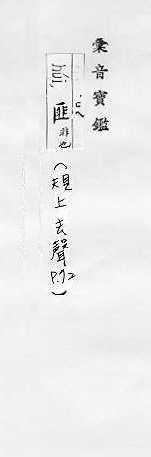 彙音寶鑑
húi,
匪 非也
(規上去聲
P.72)